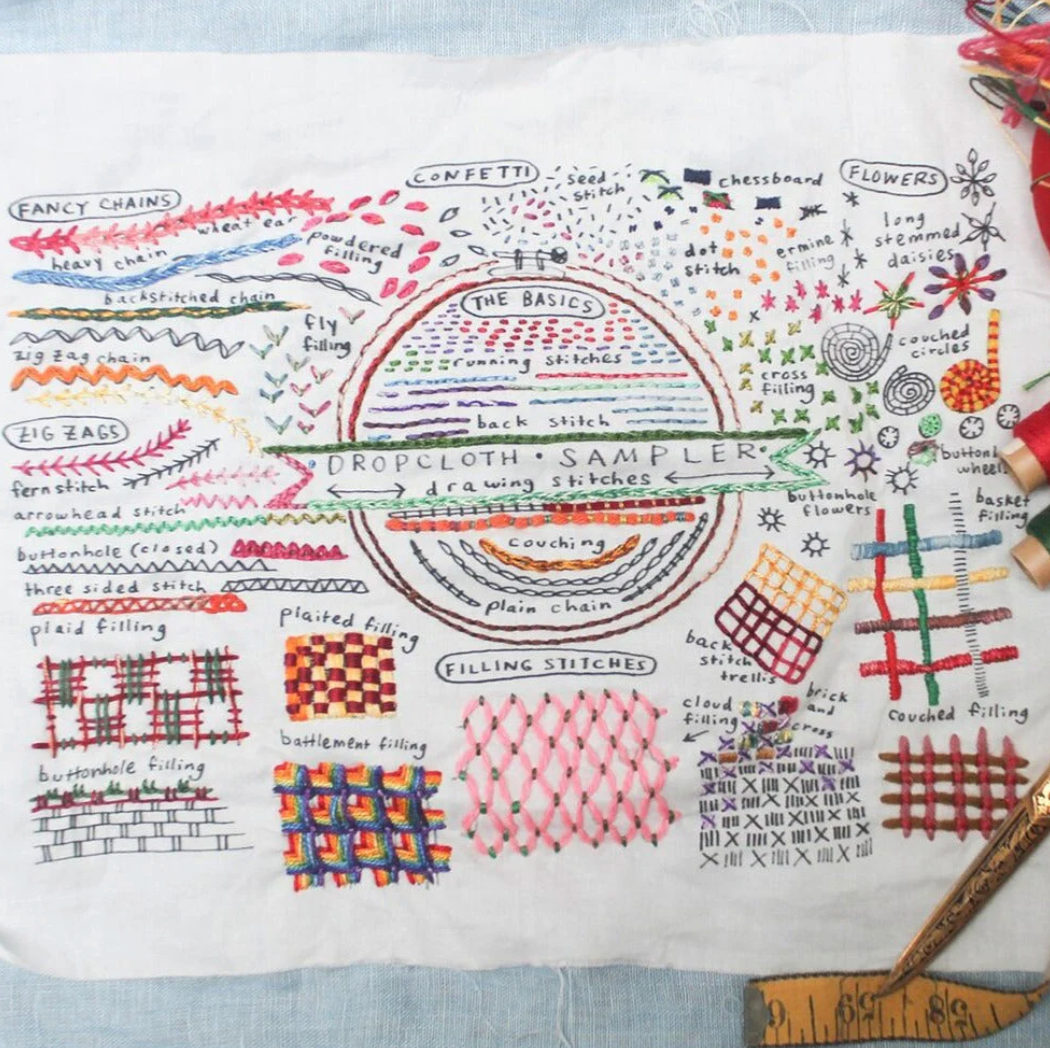 FANCY CHAINS
wheat ear
heavy chain
backstitched chain
zig zag chain
powdered
filling
fly
filling
CONFETTI
seed
stitch
chessboard
dot
stitch
ermine
filling
cross
filling
FLOWERS
long
stemmed
daisies
couched
circles
buttonhole
flowers
ZIG ZAGS
fern stitch
arrowhead stitch
buttonhole (closed)
three sided stitch
THE BASICS
running stitches
back stitch
DROPCLOTH • SAMPLER
drawing stitches
couching
plain chain
FILLING STITCHES
plaid filling
plaited filling
buttonhole filling
battlement filling
back
stitch
trellis
cloud
filling
brick
and
cross
basket
filling
couched filling